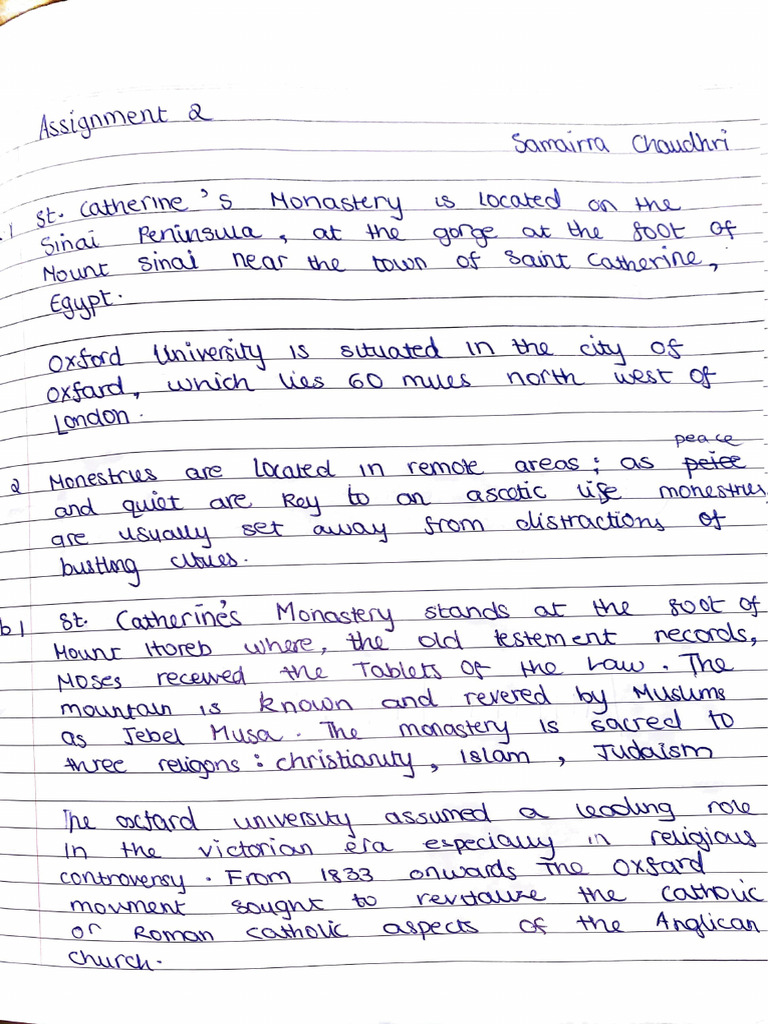 Assignment 2
Samairra Chaudhri
.1 St. Catherine's Monastery is located on the
Sinai Peninsula, at the gorge at the foot of
Mount Sinai near the town of Saint Catherine,
Egypt.
Oxford University is situated in the city of
Oxfard, which lies 60 miles north west of
London.
peace
2 Monestries are located in remote areas; as peiee
and quiet are key to an ascetic life monestries
are usually set away from distractions of
bustling cities.
b1 St. Catherine's Monastery stands at the foot of
Mount Horeb where, the old testement records,
Moses received the Tablets of the Law. The
mountain is known and revered by Muslims
as Jebel Musa. The monastery is sacred to
three religons: christianity, Islam, Judaism
The oxfard university assumed a leading role
in the victorian era especially in religious
controversy. From 1833 onwards The Oxfard
movment sought to revitalise the catholic
or Roman catholic aspects of the Anglican
church.